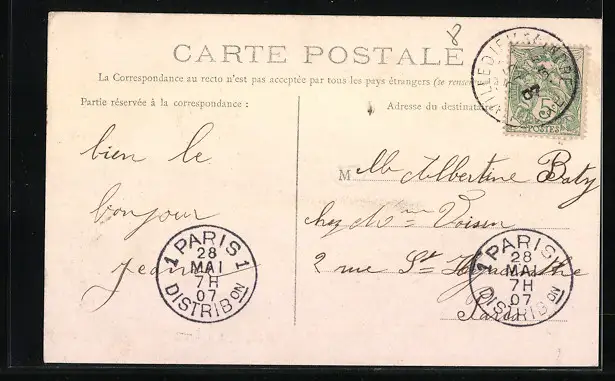 8
CARTE POSTALE
La Correspondance au recto n'est pas acceptée par tous les pays étrangers (se rense
Partie réservée à la correspondance :
Adresse du destinataire
5
POSTES
bien le
bonjour
Jean
M lle Albertine Baty
chez Mme Voisin
2 rue St Hyacinthe
Paris
1 PARIS 1
28
MAI
7H
07
DISTRIBON
1 PARIS 1
28
MAI
7H
07
DISTRIBON